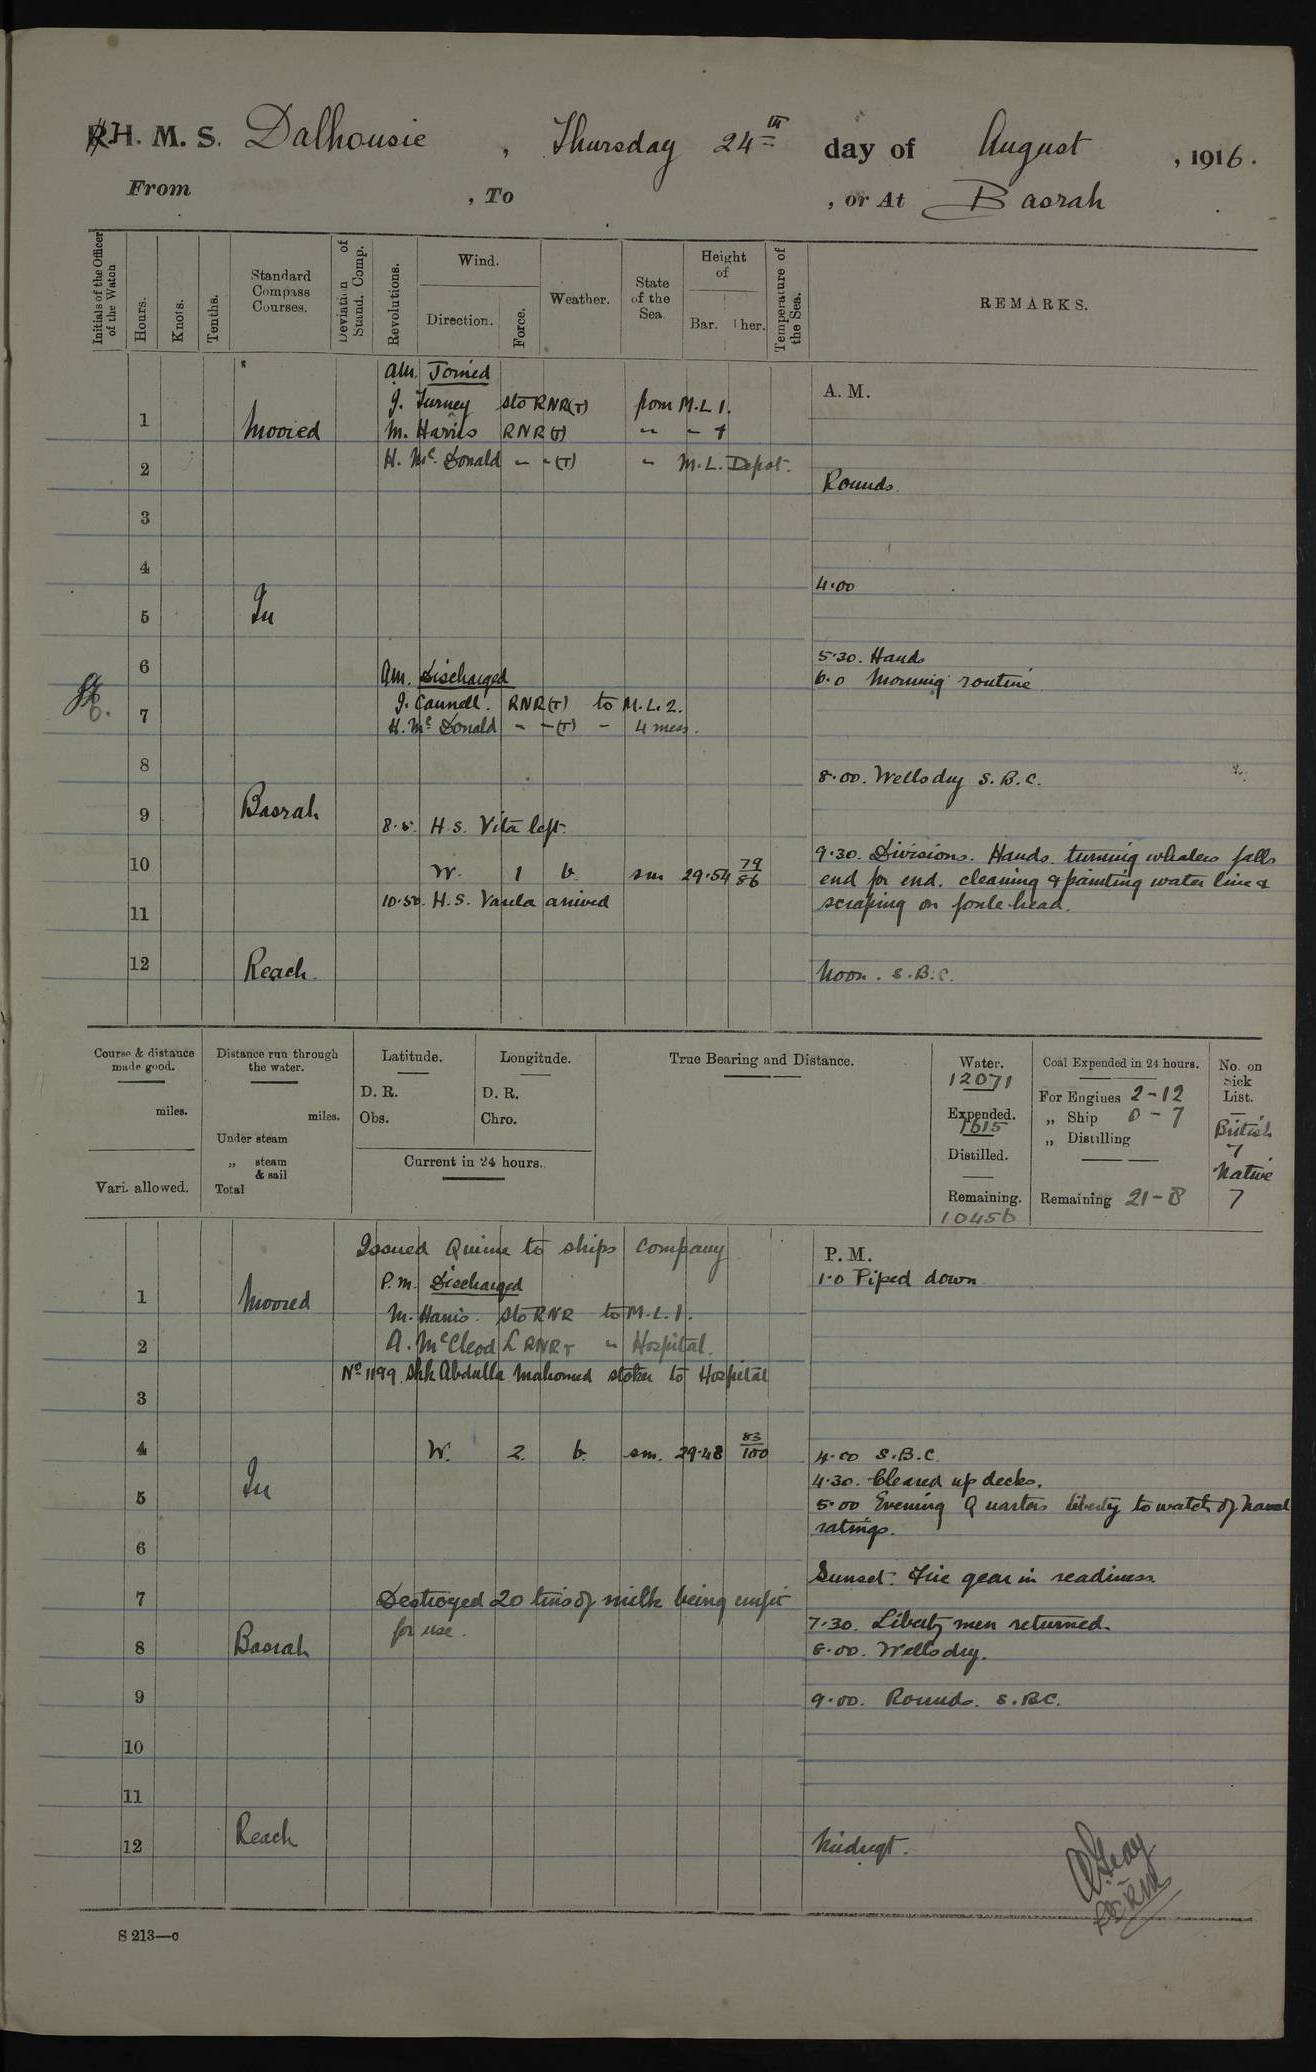 H. M. S. Dalhousie , Thursday 24th day of August , 1916.
From , To , or At Basrah
Initials of the Officer of the Watch
Hours.
Knots.
Tenths.
Standard Compass Courses.
Deviation of Stand. Comp.
Revolutions.
Wind.
Direction.
Force.
Weather.
State of the Sea
Height of
Bar.
Ther.
Temperature of the Sea.
REMARKS.
A. M.
am. Joined
J. Turney sto RNR(T) from M.L 1.
1 Moored M. Harris RNR(T) " "
2 H. McDonald " " (T) " M.L. Depot.
Rounds.
3
4
4.00
5 In
5.30. Hands
6 6.0 Morning routine
am. Discharged
RNR(T) to M.L. 2.
7 H. McDonald " " (T) " 4 mess.
8 8.00. Wells dry S.B.C.
9 Basrah
8.5. H.S. Vita left.
9.30. Divisions. Hands turning whalers falls
10 W. 1 b sm 29.54 79/86 end for end. cleaning & painting water line &
10.50. H.S. Varela arrived scraping on foxle-head.
11
12 Reach. Noon. S.B.C.
Course & distance made good.
miles.
Vari. allowed.
Distance run through the water.
miles.
Under steam
„ steam & sail
Total
Latitude.
D. R.
Obs.
Longitude.
D. R.
Chro.
Current in 24 hours.
True Bearing and Distance.
Water.
12071
Expended.
1615
Distilled.
Remaining.
10456
Coal Expended in 24 hours.
For Engines 2-12
„ Ship 0-7
„ Distilling
Remaining 21-8
No. on Sick List.
British
7
Native
7
Issued Quinine to ships company
P. M.
P.m. Discharged 1.0 Piped down
1 Moored M. Harris. Sto RNR to M.L.1.
2 A. McCleod L RNR T " Hospital.
No 1199 Shk Abdulla Mahomed stoker to Hospital
3
4 W. 2. b. sm. 29.48 83/100 4.00 S.B.C.
4.30. Cleared up decks.
5 In 5.00 Evening Quarters liberty to watch of naval
ratings.
6
Sunset. Fire gear in readiness
7 Destroyed 20 tins of milk being unfit
for use. 7.30. Liberty men returned.
8 Basrah 8.00. Wells dry.
9 9.00. Rounds. S.B.C.
10
11
12 Reach Midngt.
S 213—c